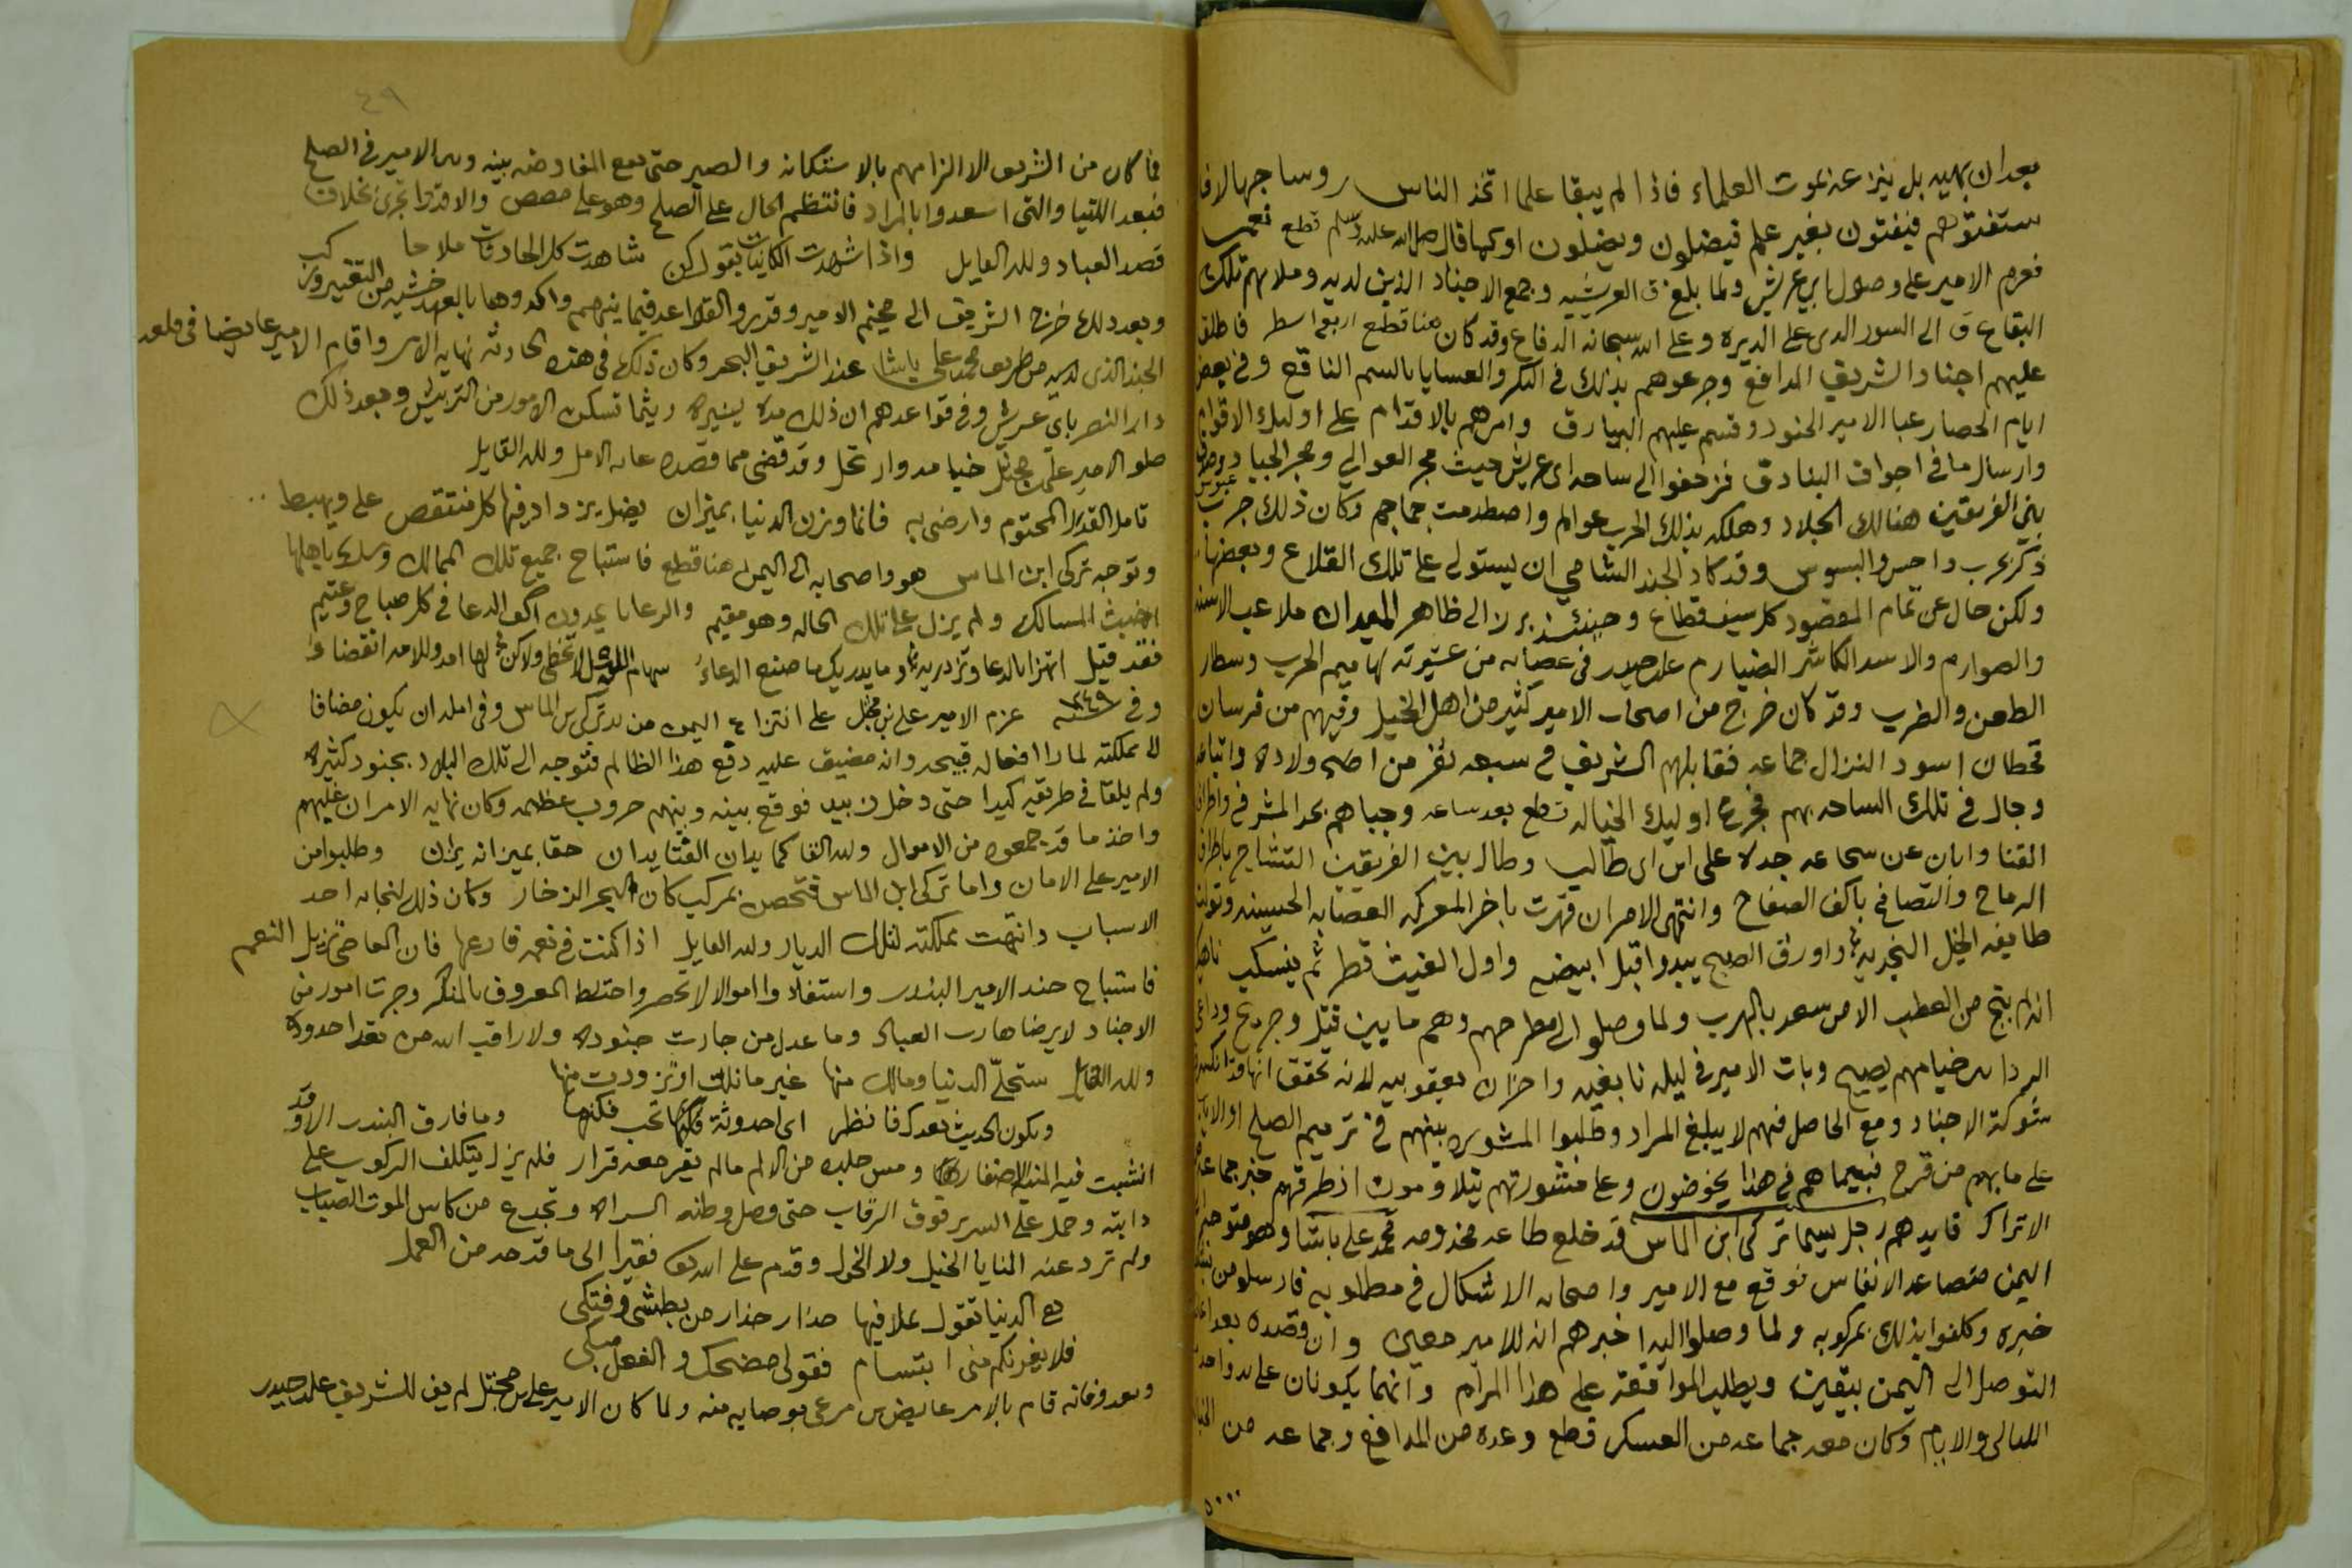 بعد ان يهبه بل ينزعه بموت العلماء فاذا لم يبقا علما اتخذ الناس روسا جهالا
ستفتوهم فيفتون بغير علم فيضلون ويضلون او كما قال صلى الله عليه وسلم قطع
فعزم الامير على وصول ابي عريش ولما بلغ العريشيه وجمع الاجناد الذين لديه وملا بهم تلك
البقاع الى السور الدى على الديره وعلى الله سبحانه الدفاع وقد كان هنا قطع فاطلق
عليهم اجناد الشريف المدافع وجرعوهم بذلك في البكر والعسايا بالسم الناقع وفي بعض
ايام الحصار عبا الامير الجنود وقسم عليهم البيارق وامرهم بالاقدام على اوليك الاقوام
وارسال ما في اجواف البنادق فزحفوا الى ساحه ابى عريش حيث مجر العوالي ومجر الجياد
بين الفريقين هنالك الجلاد وهلكه بذلك الحرب عوالم واصطدمت جماجم وكان ذلك حرب
ذكر بحرب داحس والبسوس وقد كاد الجند الشامي ان يستولى على تلك القلاع وبعضها
ولكن حال عن تمام المقصود كل سيف قطاع وحينئذ برز الى ظاهر الميدان ملاعب الاسنه
والصوارم والاسد الكاشر الضيارم على حيدر في عصابه من عشيرته لهاميم الحرب وسطار
الطعن والضرب وقد كان خرج من اصحاب الامير كثير من اهل الخيل وفيهم من فرسان
قحطان اسود النزال جماعه فقابلهم الشريف في سبعه نفر من اخوه واولاده واتباعه
وجال في تلك الساحه بهم فجرع اوليك الخياله قطع بعد ساعه وجباهم بحد المشرفي واطراف
القنا وابان عن شجاعه جده على ابن ابى طالب وطال بين الفريقين التشاجر باطراف
الرماح والتصافح باكف الصفاح وانتهى الامر ان قهرت باخر المعركه العصابه الحسينيه وتولت
طايفه الخيل النجديه واورق الصبح يبدوا قبل ابيضه واول الغيث قطر ثم ينسكب ناهيك
انه لم ينج من العطب الا من سعد بالهرب ولما وصلوا الى مطرحهم وهم ما بين قتيل وجريح
الردا بين خيامهم يصيح وبات الامير في ليله نابغيه واحزان يعقوبيه لانه تحقق انها قد انكسرت
شوكة الاجناد ومع الحاصل فيهم لا يبلغ المراد وطلبوا المشوره بينهم في ترميم الصلح
على ما بهم من قرح فبيما هم في هذا يخوضون وعلى مشورتهم تيلاومون اذ طرقهم خبر جماعه
الاتراك قايدهم رجل يسما تركى ابن الماس قد خلع طاعه مخدومه محمد على باشا وهو متوجه
اليمن متصاعد الانفاس فوقع مع الامير واصحابه الاشكال في مطلوبه فارسلو من
خبره وكلفوا بذلك بمركوبه ولما وصلوا اليه اخبرهم انه للامير معين وان قصده بعد
التوصل الى اليمن بيقين ويطلب الموافقة على هذا المرام وانهما يكونان على يد واحده
الليالى والايام وكان معه جماعه من العسكر قطع وعده من المدافع وجماعه من
٤٩
فما كان من الشريف الا الزامهم بالاستكانه والصبر حتى تقع المفاوضه بينه وبين الامير في الصلح
فبعد اللتيا والتي اسعدوا بالمراد فانتظم الحال على الصلح وهو على مضض والاقدار تجرى بخلاف
قصد العباد ولله القايل واذا شهدت الكاينات بقول كن شاهدت كل الحادثات ملاحا
وبعد ذلك خرج الشريف الى مخيم الامير وقدروا القواعد فيما بينهم واكدوها بالعهد خشيه من التغيير
الجند الذى لديه من طريق محمد على باشا عند الشريف البحر وكان ذلك في هذه الحادثه نهايه الامر واقام الامير عايضا في قلعه
دار النصر بابي عريش وفي قواعدهم ان ذلك مده يسيره ريثما تسكن الامور من التريش وبعد ذلك
طلع الامير على بن مجثل خيامه وارتحل وقد قضى مما قصده غايه الامل ولله القايل
تامل القدر المحتوم وارضى به فانما وزن الدنيا بميزان يضل يزداد فيها كل منتقص على ويهبط
وتوجه تركى ابن الماس هو واصحابه الى اليمن هنا قطع فاستباح جميع تلك الممالك وسلك باهلها
اخبث المسالك ولم يزل على تلك الحاله وهو مقيم والرعايا يمدون اكف الدعا في كل صباح وعتيم
فقد قيل اتهزا بالدعا وتزدريه وما يدريك ما صنع الدعاء سهام الليل لا تخطى ولاكن لها امد وللامد انقضا
وفي سنه ١٢٤٩ عزم الامير على بن مجثل على انتزاع اليمن من يد تركى بن الماس وفي امله ان يكون مضافا
لا مملكته لما راا فعاله قبيحه وانه مضيق عليه دفع هذا الظالم فتوجه الى تلك البلاد بجنود كثيره
ولم يلقا في طريقه كيدا حتى دخل زبيد فوقع بينه وبينهم حروب عظيمه وكان نهايه الامر ان غلبهم
واخذ ما قد جمعوه من الاموال ولله القا كما يدان الفتا يدان حقا بميزانه يزان وطلبوا من
الامير على الامان واما تركى ابن الماس فتحصن بمركب كان بالبحر الزخار وكان ذلك لنجاته احد
الاسباب وانتهت مملكته لتلك الديار ولله القايل اذا كنت في نعمه فارعها فان المعاصى تزيل النعم
فاستباح جند الامير البندر واستفادوا اموالا لا تحصر واختلط المعروف بالمنكر وجرت امور من
الاجناد لا يرضاها رب العباد وما عدل من جارت جنوده ولا راقب الله من تعدا حدوده
ولله القايل ستخلّي الدنيا ومالك منها غير ما نلت او تزودت منها
وتكون الحديث بعدك فانظر اى احدوثة تحب فكنها وما فارق البندر الا وقد
انشبت فيه المنيه اضفارها ومس جلده من الالم مالم يقر معه قرار فلم يزل يتكلف الركوب على
دابته وحمل على السرير فوق الرقاب حتى وصل وطنه السراه وتجرع من كاس الموت الصاب
ولم ترد عنه المنايا الخيل ولا الخول وقدم على الله تعالى فقيرا الى ما قدمه من العمل
هي الدنيا تقول بملا فيها حذار حذار من بطشى وفتكى
فلا يغرنكم منى ابتسام فقولى مضحك والفعل مبكى
وبعد وفاته قام بالامر عايض بن مرعى بوصايه منه ولما كان الامير على بن مجثل لم يف للشريف على حيدر